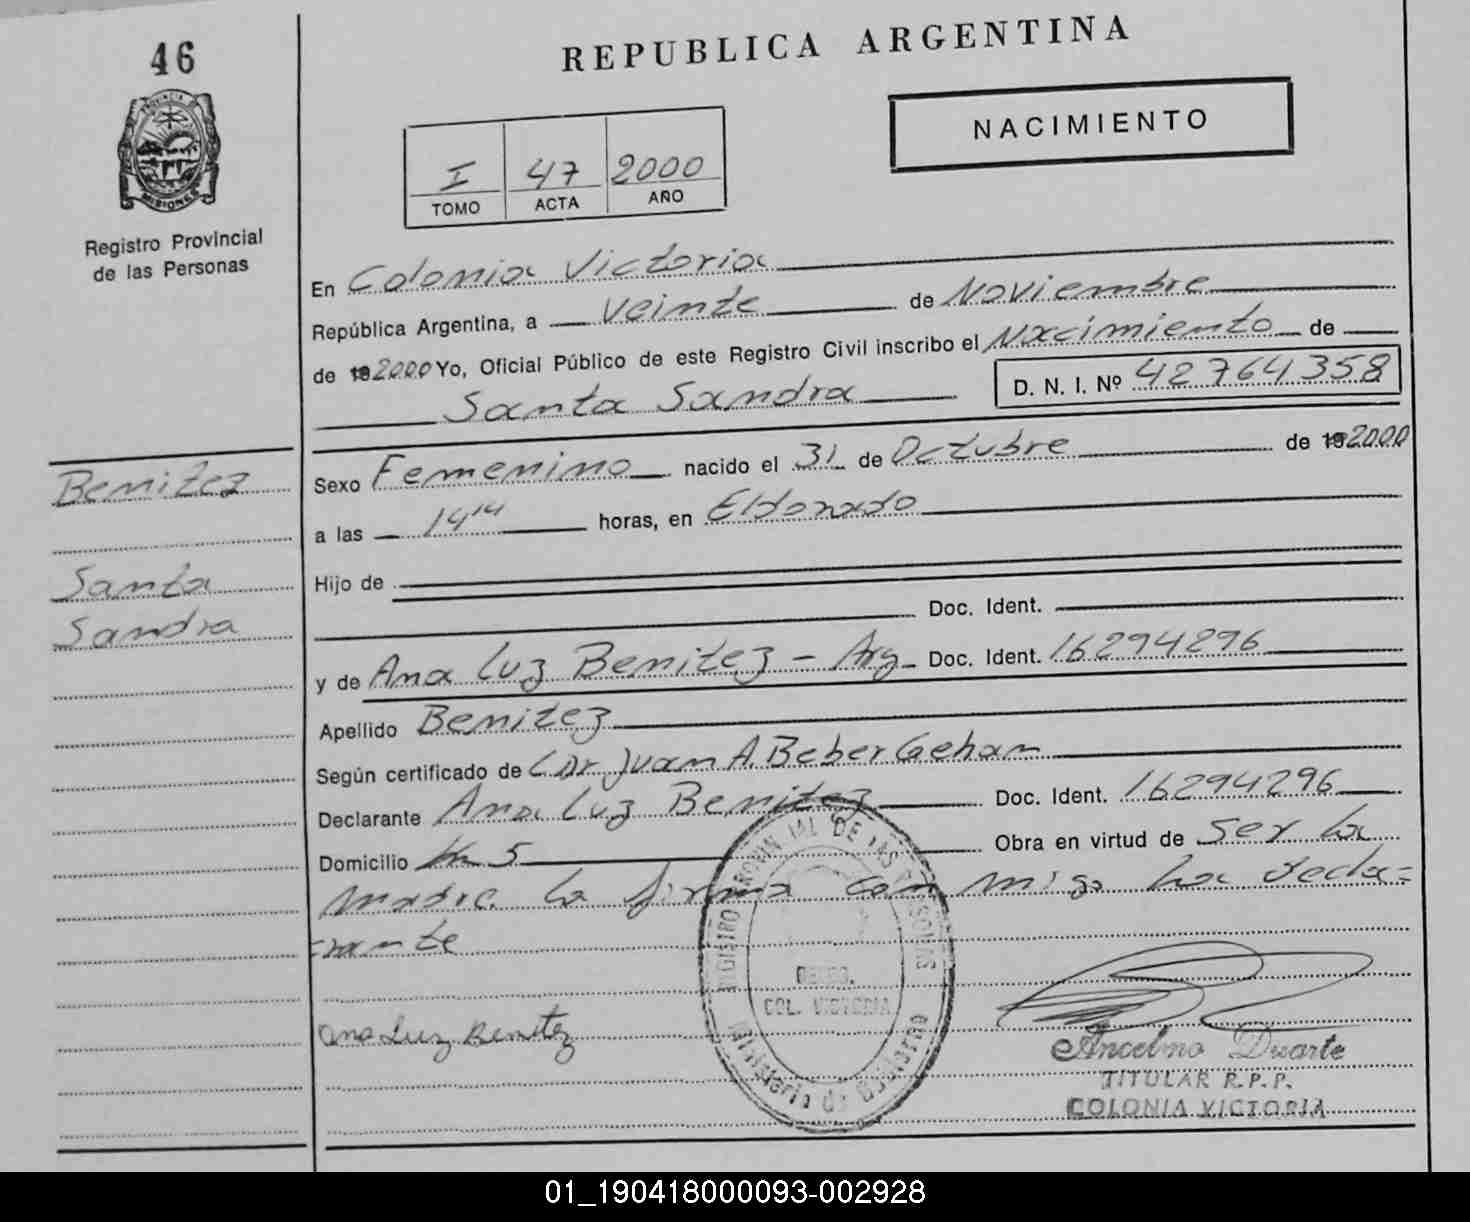 46
REPUBLICA ARGENTINA
PROVINCIA DE
MISIONES
Registro Provincial
de las Personas
NACIMIENTO
I 47 2000
TOMO ACTA AÑO
En Colonia Victoria
República Argentina, a veinte de Noviembre
de 192000 Yo, Oficial Público de este Registro Civil inscribo el Nacimiento de
Santa Sandra D. N. I. Nº 42764358
Benitez
Santa
Sandra
Sexo Femenino nacido el 31 de Octubre de 192000
a las 14 14 horas, en Eldorado
Hijo de
Doc. Ident.
y de Ana Luz Benitez - Arg Doc. Ident. 16294296
Apellido Benitez
Según certificado de Dr Juan A. Beber Gehan
Declarante Ana Luz Benitez Doc. Ident. 16294296
Domicilio Km 5 Obra en virtud de ser la
madre. la firma con migo la decla=
=rante
REGISTRO PROVINCIAL DE LAS PERSONAS
COL. VICTORIA
Ministerio de Gobierno
Ana Luz Benitez
Ancelmo Duarte
TITULAR R.P.P.
COLONIA VICTORIA
01_190418000093-002928